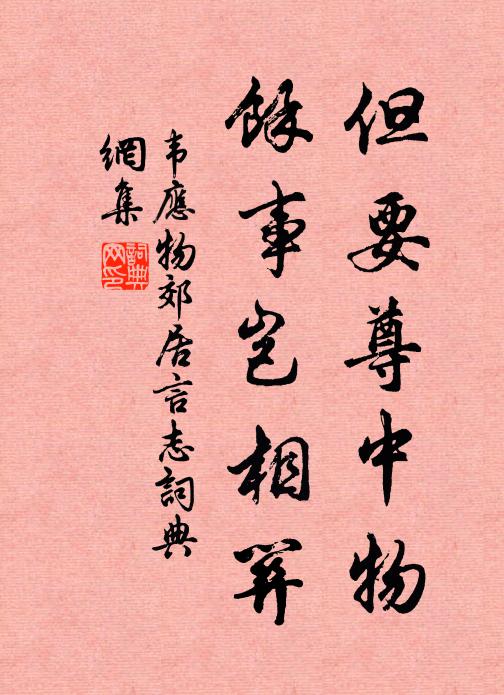 但要尊中物
餘事豈相關
韋應物郊居言志詞典
網集
詞典
网印